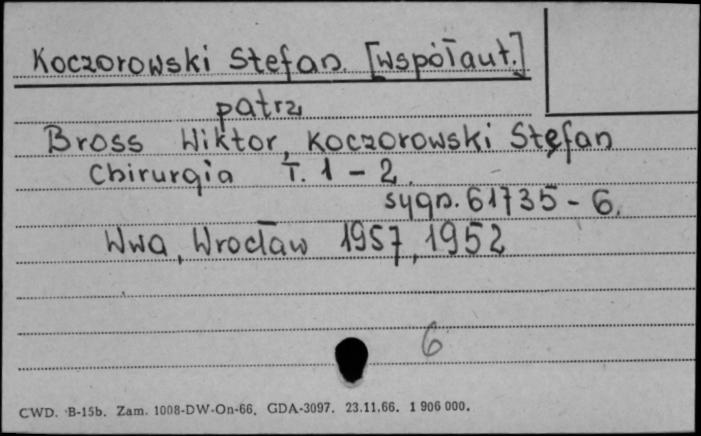 Koczorowski Stefan. [współaut.]
patrz
Bross Wiktor, Koczorowski Stefan
Chirurgia T. 1 - 2.
sygn. 61735 - 6.
Wwa, Wrocław 1957, 1952
6
CWD. B-15b. Zam. 1008-DW-On-66. GDA-3097. 23.11.66. 1 906 000.